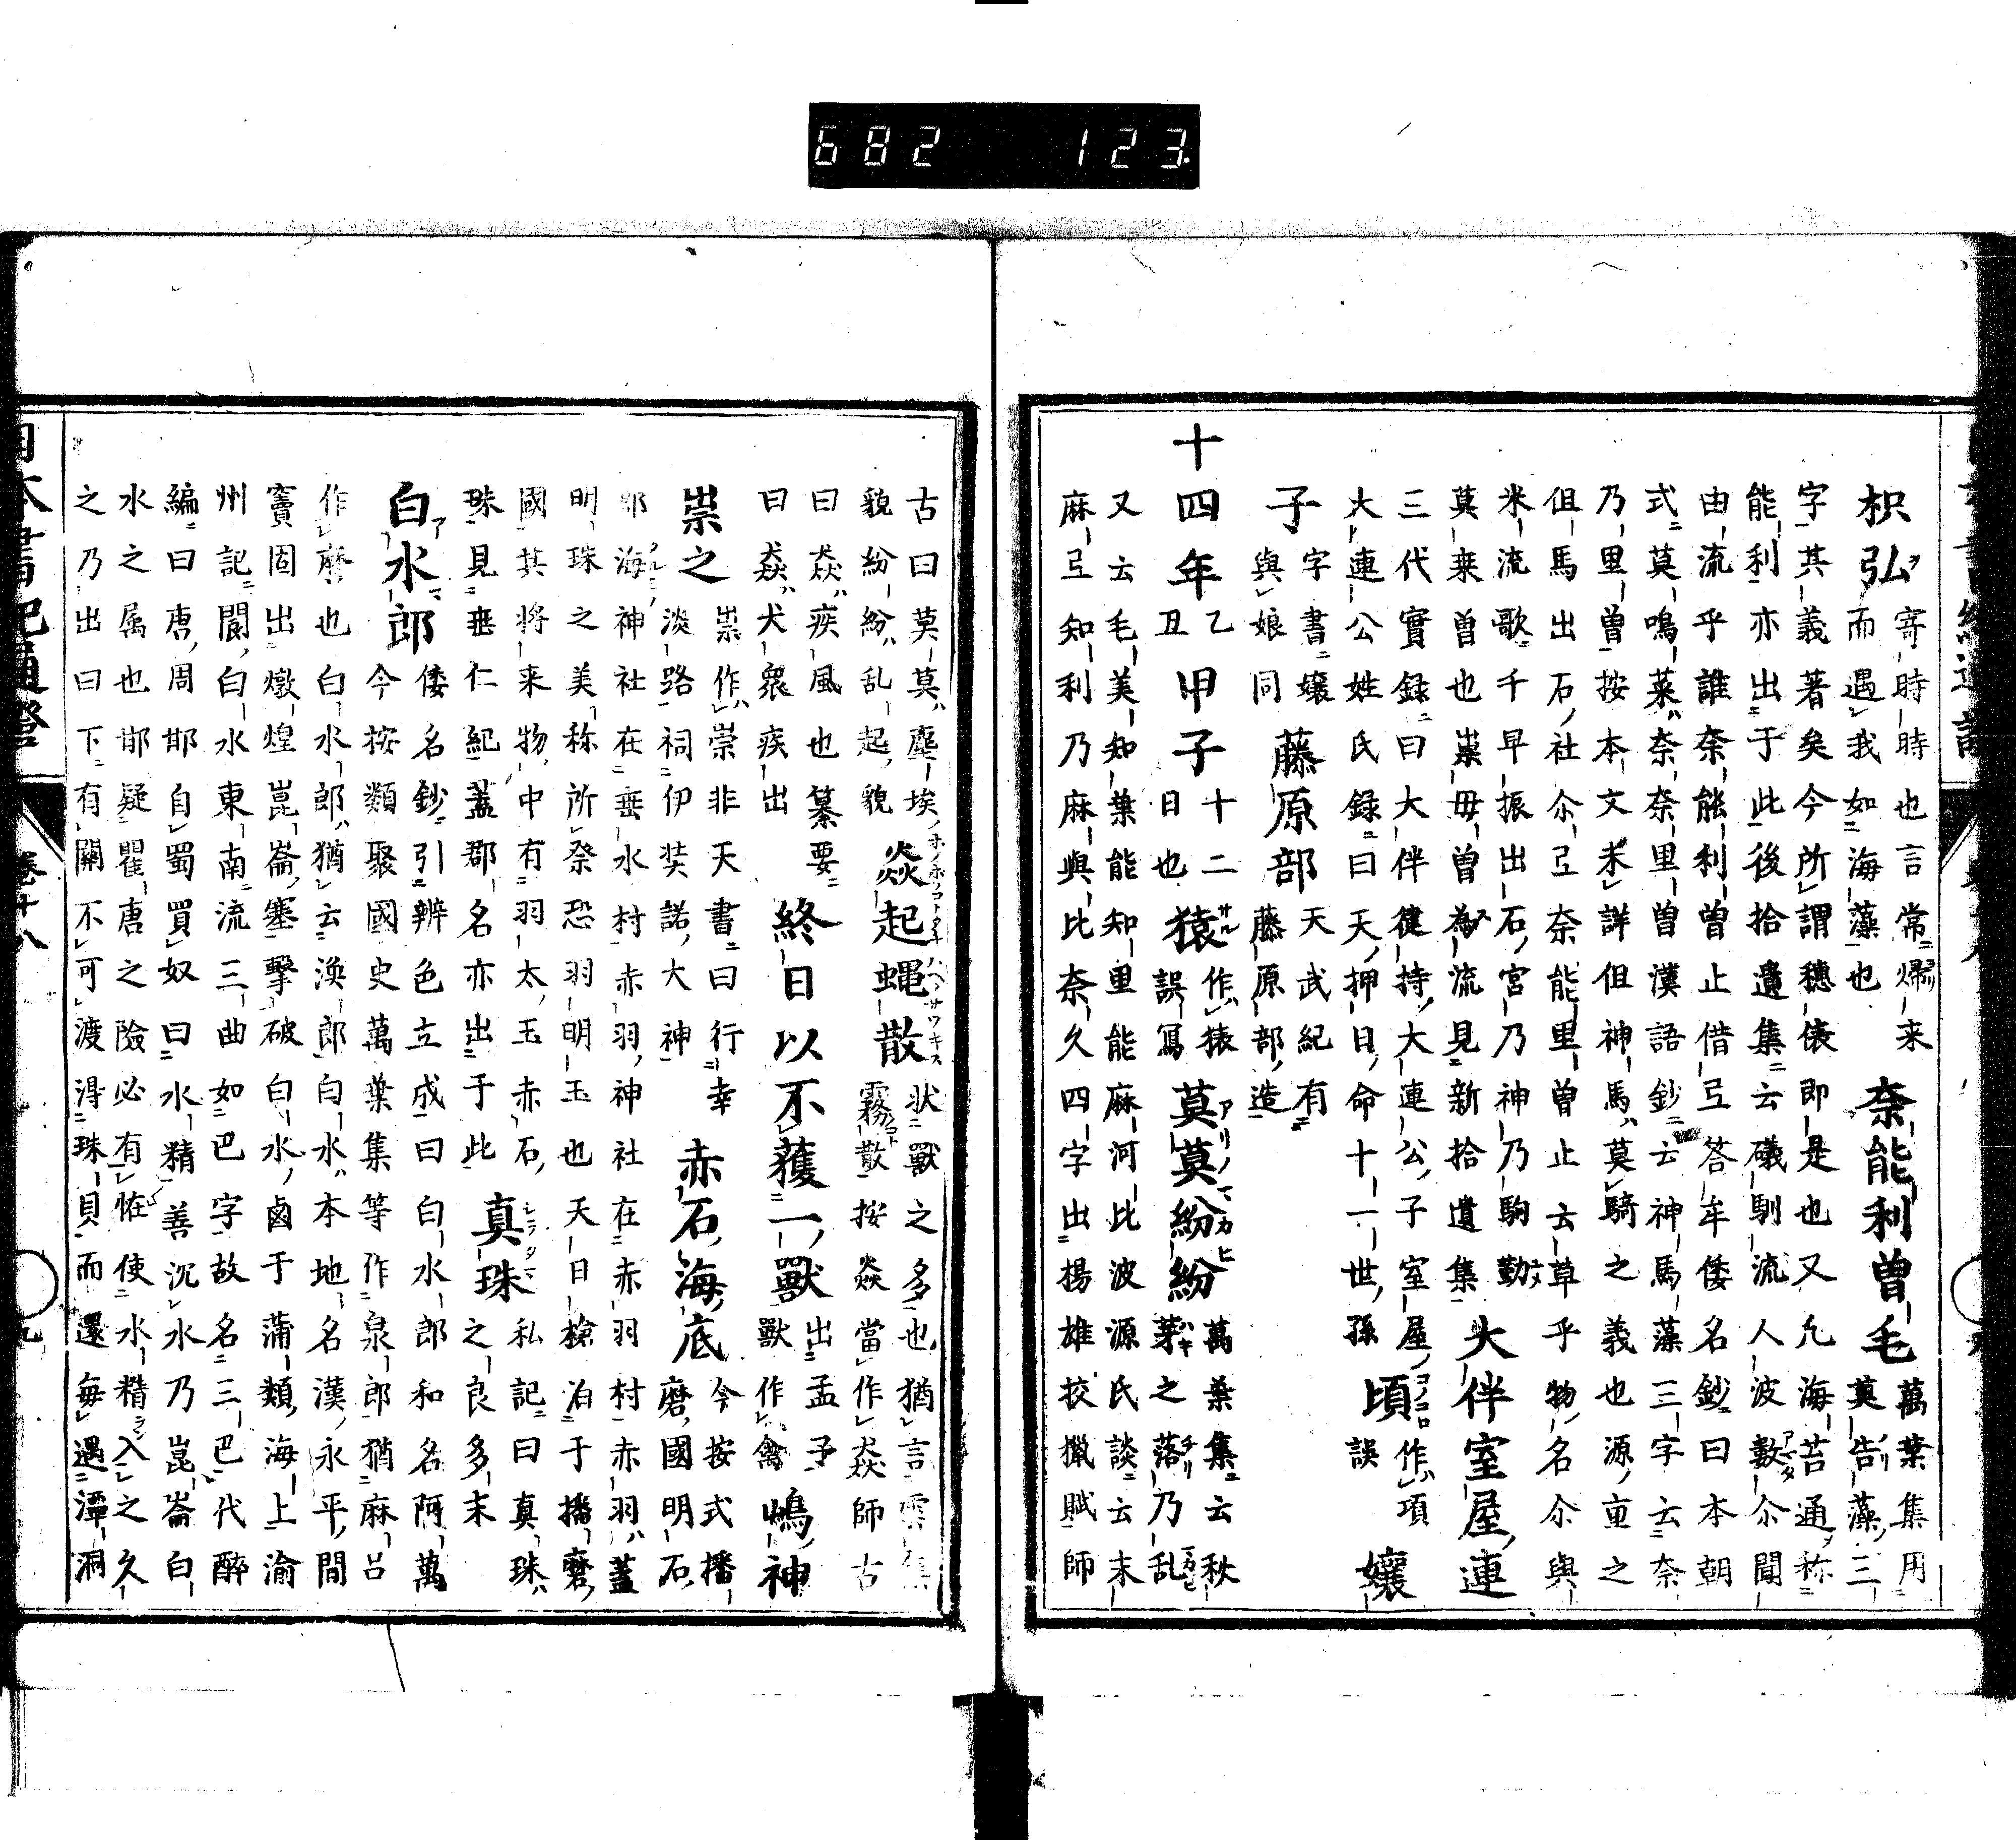 682 123.
枳弘寄時時也言常歸来
而遇我如海藻也
奈能利曽毛萬葉集用
莫告藻三
字其義著矣今所謂穗俵即是也又凢海苔通称
能利亦出于此後拾遺集云礒馴流人波數尒聞
由流乎誰奈能利曽止借弖答牟倭名鈔曰本朝
式莫鳴菜奈奈里曽漢語鈔云神馬藻三字云奈
乃里曽按本文未詳但神馬莫騎之義也源重之
但馬出石社尒弖奈能里曽止云草乎物名尒與
米流歌千早振出石宮乃神乃駒勤
莫乗曽也菓毋曽為流見新拾遺集
大伴室屋連
三代實録曰大伴健持大連公子室屋
大連公姓氏録曰天押日命十一世孫
頃作項
誤
孃
子字書孃
與娘同
藤原部天武紀有
藤原部造
十四年乙
丑
甲子十二
日也
猿作猿
誤寫
莫莫紛紛萬葉集云秋
茅之落乃乱
又云毛美知葉能知里能麻河比波源氏談云末
麻弖知利乃麻與比奈久四字出揚雄挍獵賦師
古曰莫莫塵埃
貌紛紛乱起貌
焱起蝿散状獸之多也猶言
霧散按焱當作猋師古
曰猋疾風也纂要
曰猋犬衆疾出
終日以不獲一獸出孟子
獸作禽
嶋神
祟之祟作崇非天書曰行幸
淡路祠伊奘諾大神
赤石海底今按式播
磨國明石
郡海神社在垂水村赤羽神社在赤羽村赤羽蓋
明珠之美称所祭恐羽明玉也天日槍泊于播磨
國其将来物中有羽太玉赤石
珠見垂仁紀蓋郡名亦出于此
真珠私記曰真珠
之良多末
白水郎倭名鈔引辨色立成曰白水郎和名阿萬
今按類聚國史萬葉集等作泉郎猶麻呂
作磨也白水郎猶云渙郎白水本地名漢永平間
竇固出燉煌崑崙塞擊破白水鹵于蒲類海上渝
州記閬白水東南流三曲如巴字故名三巴代醉
編曰唐周邯自蜀買奴曰水精善沉水乃崑崙白
水之属也邯疑瞿唐之險必有恠使水精入之久
之乃出曰下有關不可渡淂珠貝而還每遇潭洞
日本書紀通證
卷十八
九